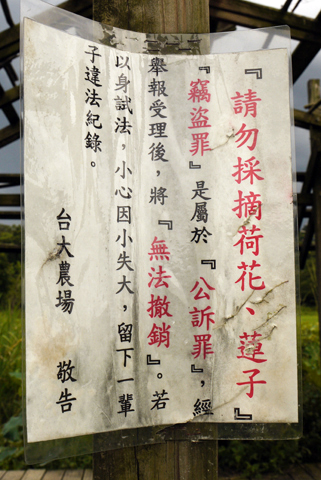 『請勿採摘荷花、蓮子』
『竊盜罪』是屬於『公訴罪』，經
舉報受理後，將『無法撤銷』。若
以身試法，小心因小失大，留下一輩
子違法紀錄。
台大農場　敬告